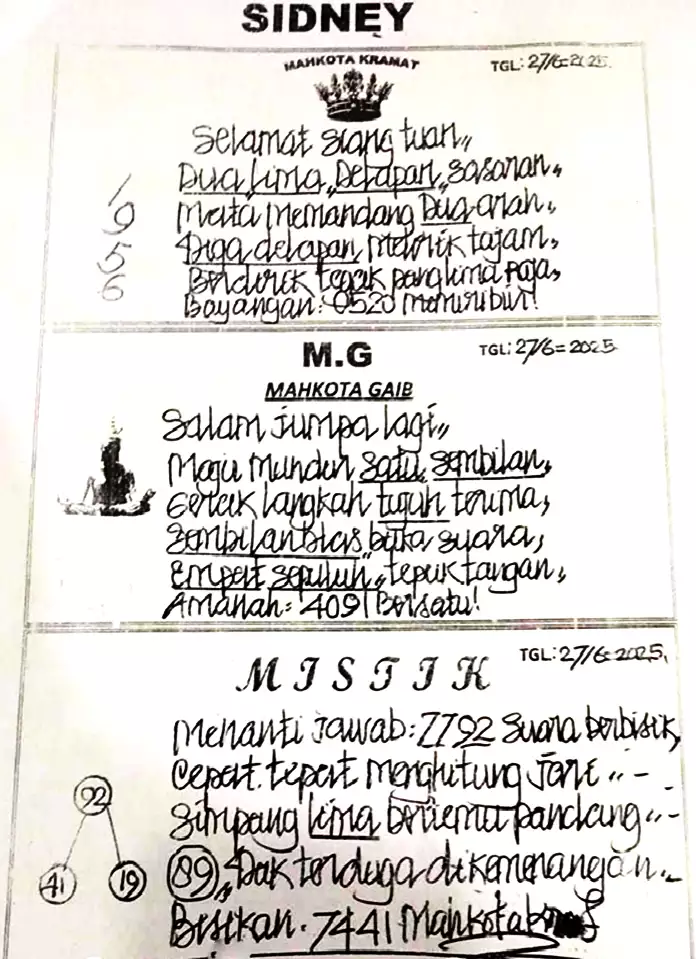 SIDNEY
MAHKOTA KRAMAT
TGL: 27/6=2025.
Selamat siang tuan,,
Dua lima,, Delapan,, sasaran,,
1
9
5
6
Mata memandang Dua arah,,
Tiga delapan, melirik tajam,,
Berderek tegak panglima Raja,,
Bayangan: 0520 memiribut!
M.G
TGL: 27/6=2025
MAHKOTA GAIB
Salam jumpa lagi,,
Maju mundur satu, sembilan,,
Gerak langkah tujuh terima,,
Sembilan blas,, buka suara,,
Empat sepuluh,, tepuk tangan,,
Amanah: 4091 Bersatu!
MISTIK
TGL: 27/6=2025.
Menanti jawab: 7792 suara berbisik,
Cepat. tepat menghitung jari ,, -
Simpang lima bertemu pandang ,, -
92
41
19
89 ,, Tak terduga di kemenangan ..
Bisikan. 7441 Mahkota